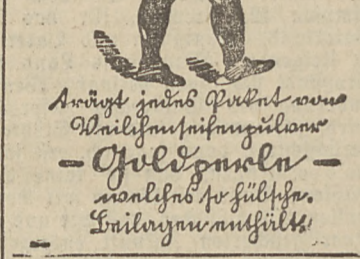 trägt jedes Paket von
Veilchenseifenpulver
- Goldperle -
welches so hübsche
Beilagen enthält.